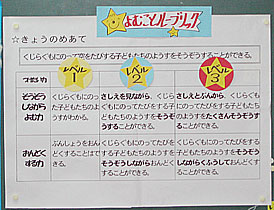 よむことルーブリック
☆きょうのめあて
くじらぐもにのって空をたびする子どもたちのようすをそうぞうすることができる。
レベル1
レベル2
レベル3
そうぞう
しながら
よむ力
くじらぐもにのっ
た子どもたちのよ
うすがわかる。
さしえを見ながら、く
じらぐもにのってたび
をする子どもたちの
ようすをそうぞう
することができる。
さしえとぶんから、く
じらぐもにのってたびを
する子どもたちのようす
をたくさんそうぞうす
ることができる。
おんどく
する力
ぶんしょうをおん
どくすることはで
きる。
くじらぐもにのってた
びをする子どもたち
のようすを
そうぞうしながらおん
どくすることができる。
くじらぐもにのってたびを
する子どもたちのようす
をそうぞうし
ながらくふうしておんどく
することができる。